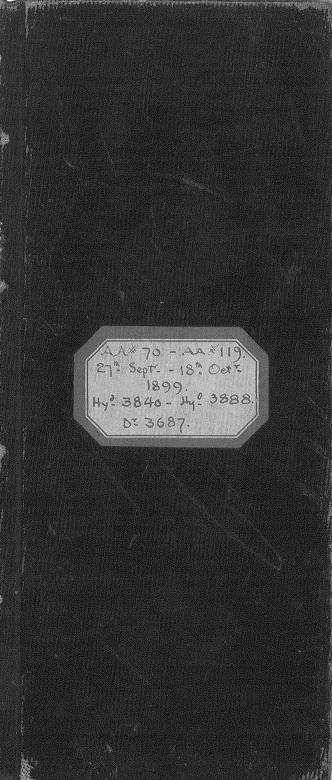 AA* 70 - AA*119.
27th Septr. - 18th Octr.
1899.
Hyd. 3840 - Hyd. 3888.
Dr. 3687.